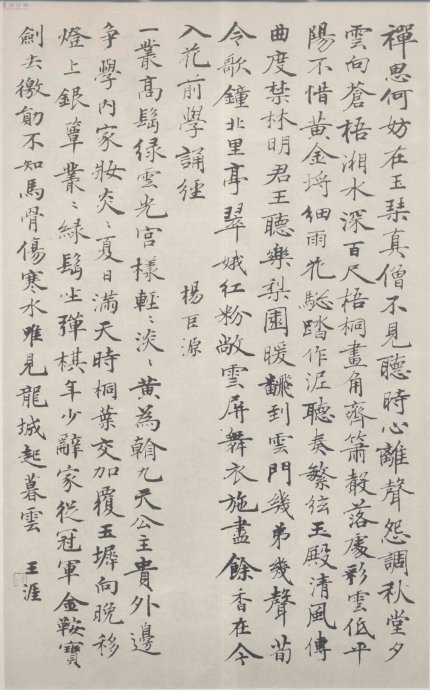 禪思何妨在玉琴真僧不見聽時心離聲怨調秋堂夕
雲向蒼梧湘水深百尺梧桐畫角齊簫聲落處彩雲低平
陽不惜黃金埒細雨花驄踏作泥聽奏繁弦玉殿清風傳
曲度禁林明君王聽樂梨園暖飜到雲門幾弟幾聲荀
令歌鐘北里亭翠娥紅粉敞雲屏舞衣施盡餘香在今
入花前學誦經　　楊巨源
一叢高鬂綠雲光宮樣輕〻淡〻黃為翰九天公主貴外邊
爭學內家妝炎〻夏日滿天時桐葉交加覆玉墀向晚移
燈上銀簟叢〻綠鬂坐彈棋年少辭家從冠軍金鞍寶
劍去徼勛不知馬骨傷寒水唯見龍城起暮雲　王涯